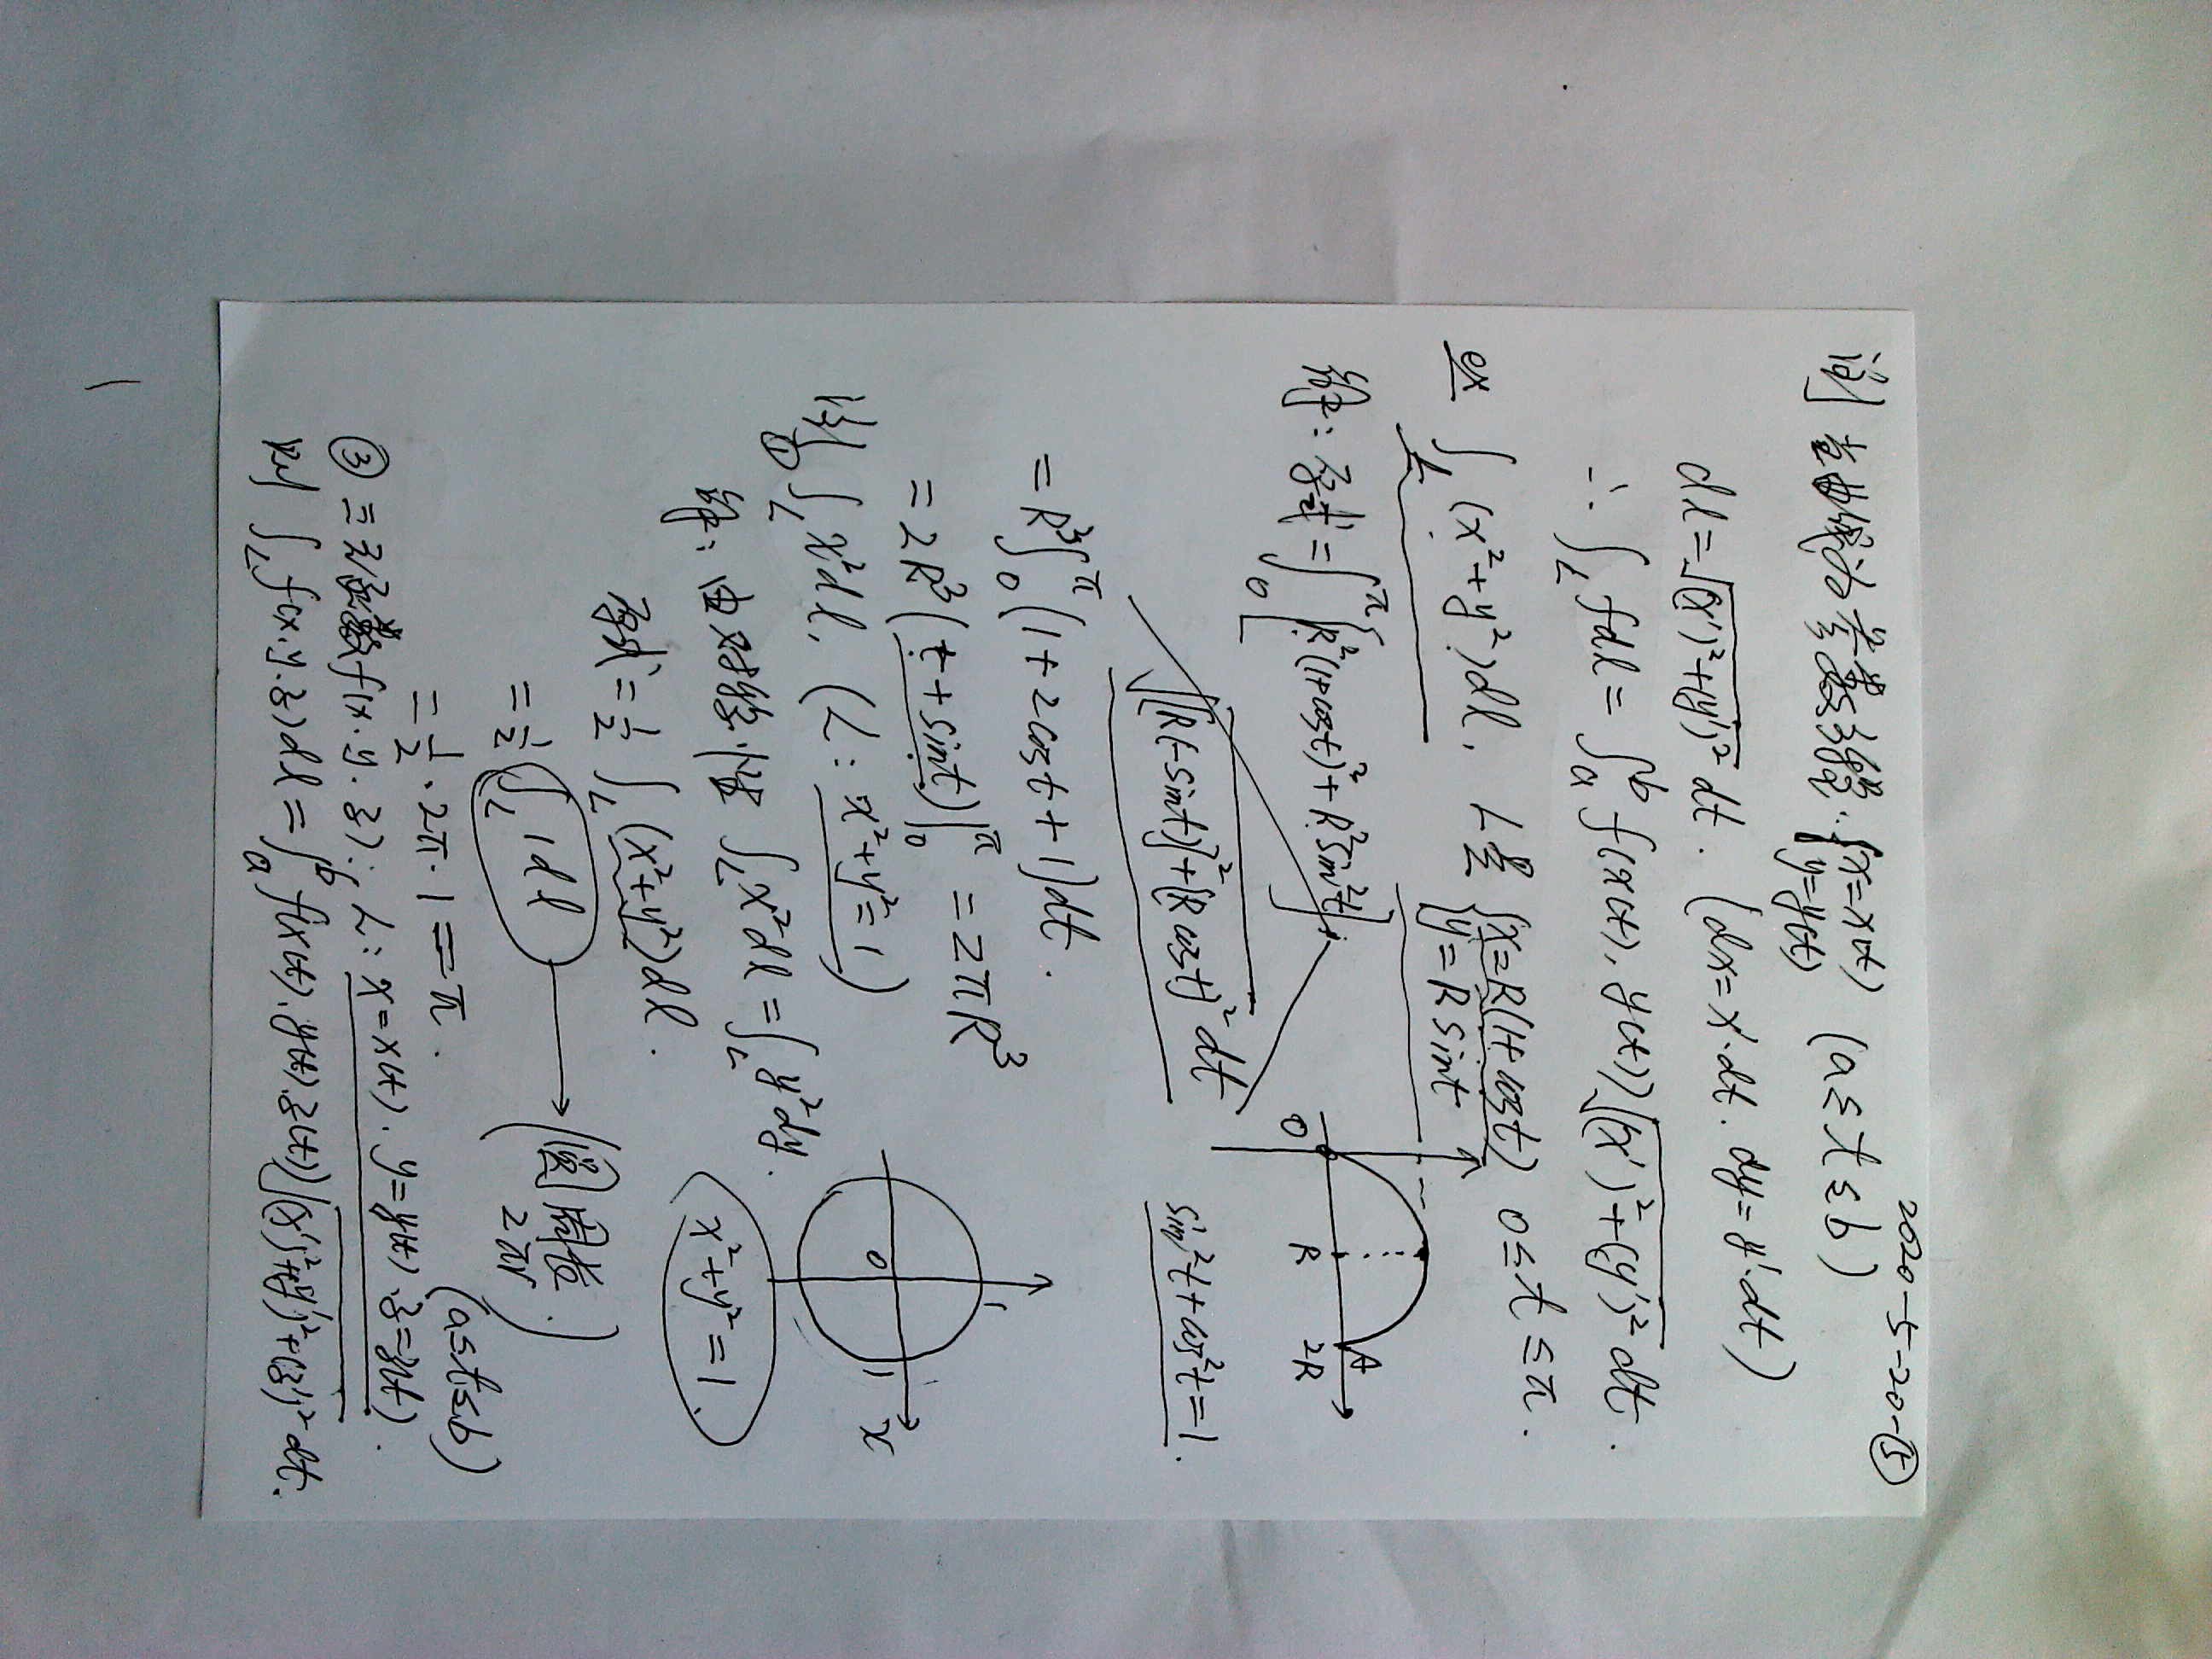 2020-5-20-⑤
若曲线为参数函数: { x=x(t) y=y(t) (a≤t≤b)
dl=√((x')²+(y')²) dt. (dx=x'·dt. dy=y'·dt)
∴ ∫_L fdl = ∫_a^b f(x(t), y(t)) √((x')²+(y')²) dt.
ex ∫_L (x²+y²)dl, L是 { x=R(1+cost) y=R sint 0≤t≤π.
解: 原式=∫_0^π [R²(1+cost)²+R²sin²t]
√([R(-sint)]²+(R cost)²) dt
O R 2R A
sin²t+cos²t=1.
=R³∫_0^π (1+2cost+1)dt.
=2R³(t+sint)|_0^π =2πR³
① ∫_L x²dl, (L: x²+y²=1)
解: 由对称性 ∫_L x²dl=∫_L y²dy.
O 1 1 x
x²+y²=1.
原式=½∫_L (x²+y²)dl.
=½∫_L 1dl → (圆周长 2πr.)
=½·2π·1=π.
③ 三元函数f(x.y.z); L: x=x(t). y=y(t). z=z(t). (a≤t≤b)
则 ∫_L f(x.y.z)dl=∫_a^b f(x(t).y(t).z(t)) √((x')²+(y')²+(z')²) dt.